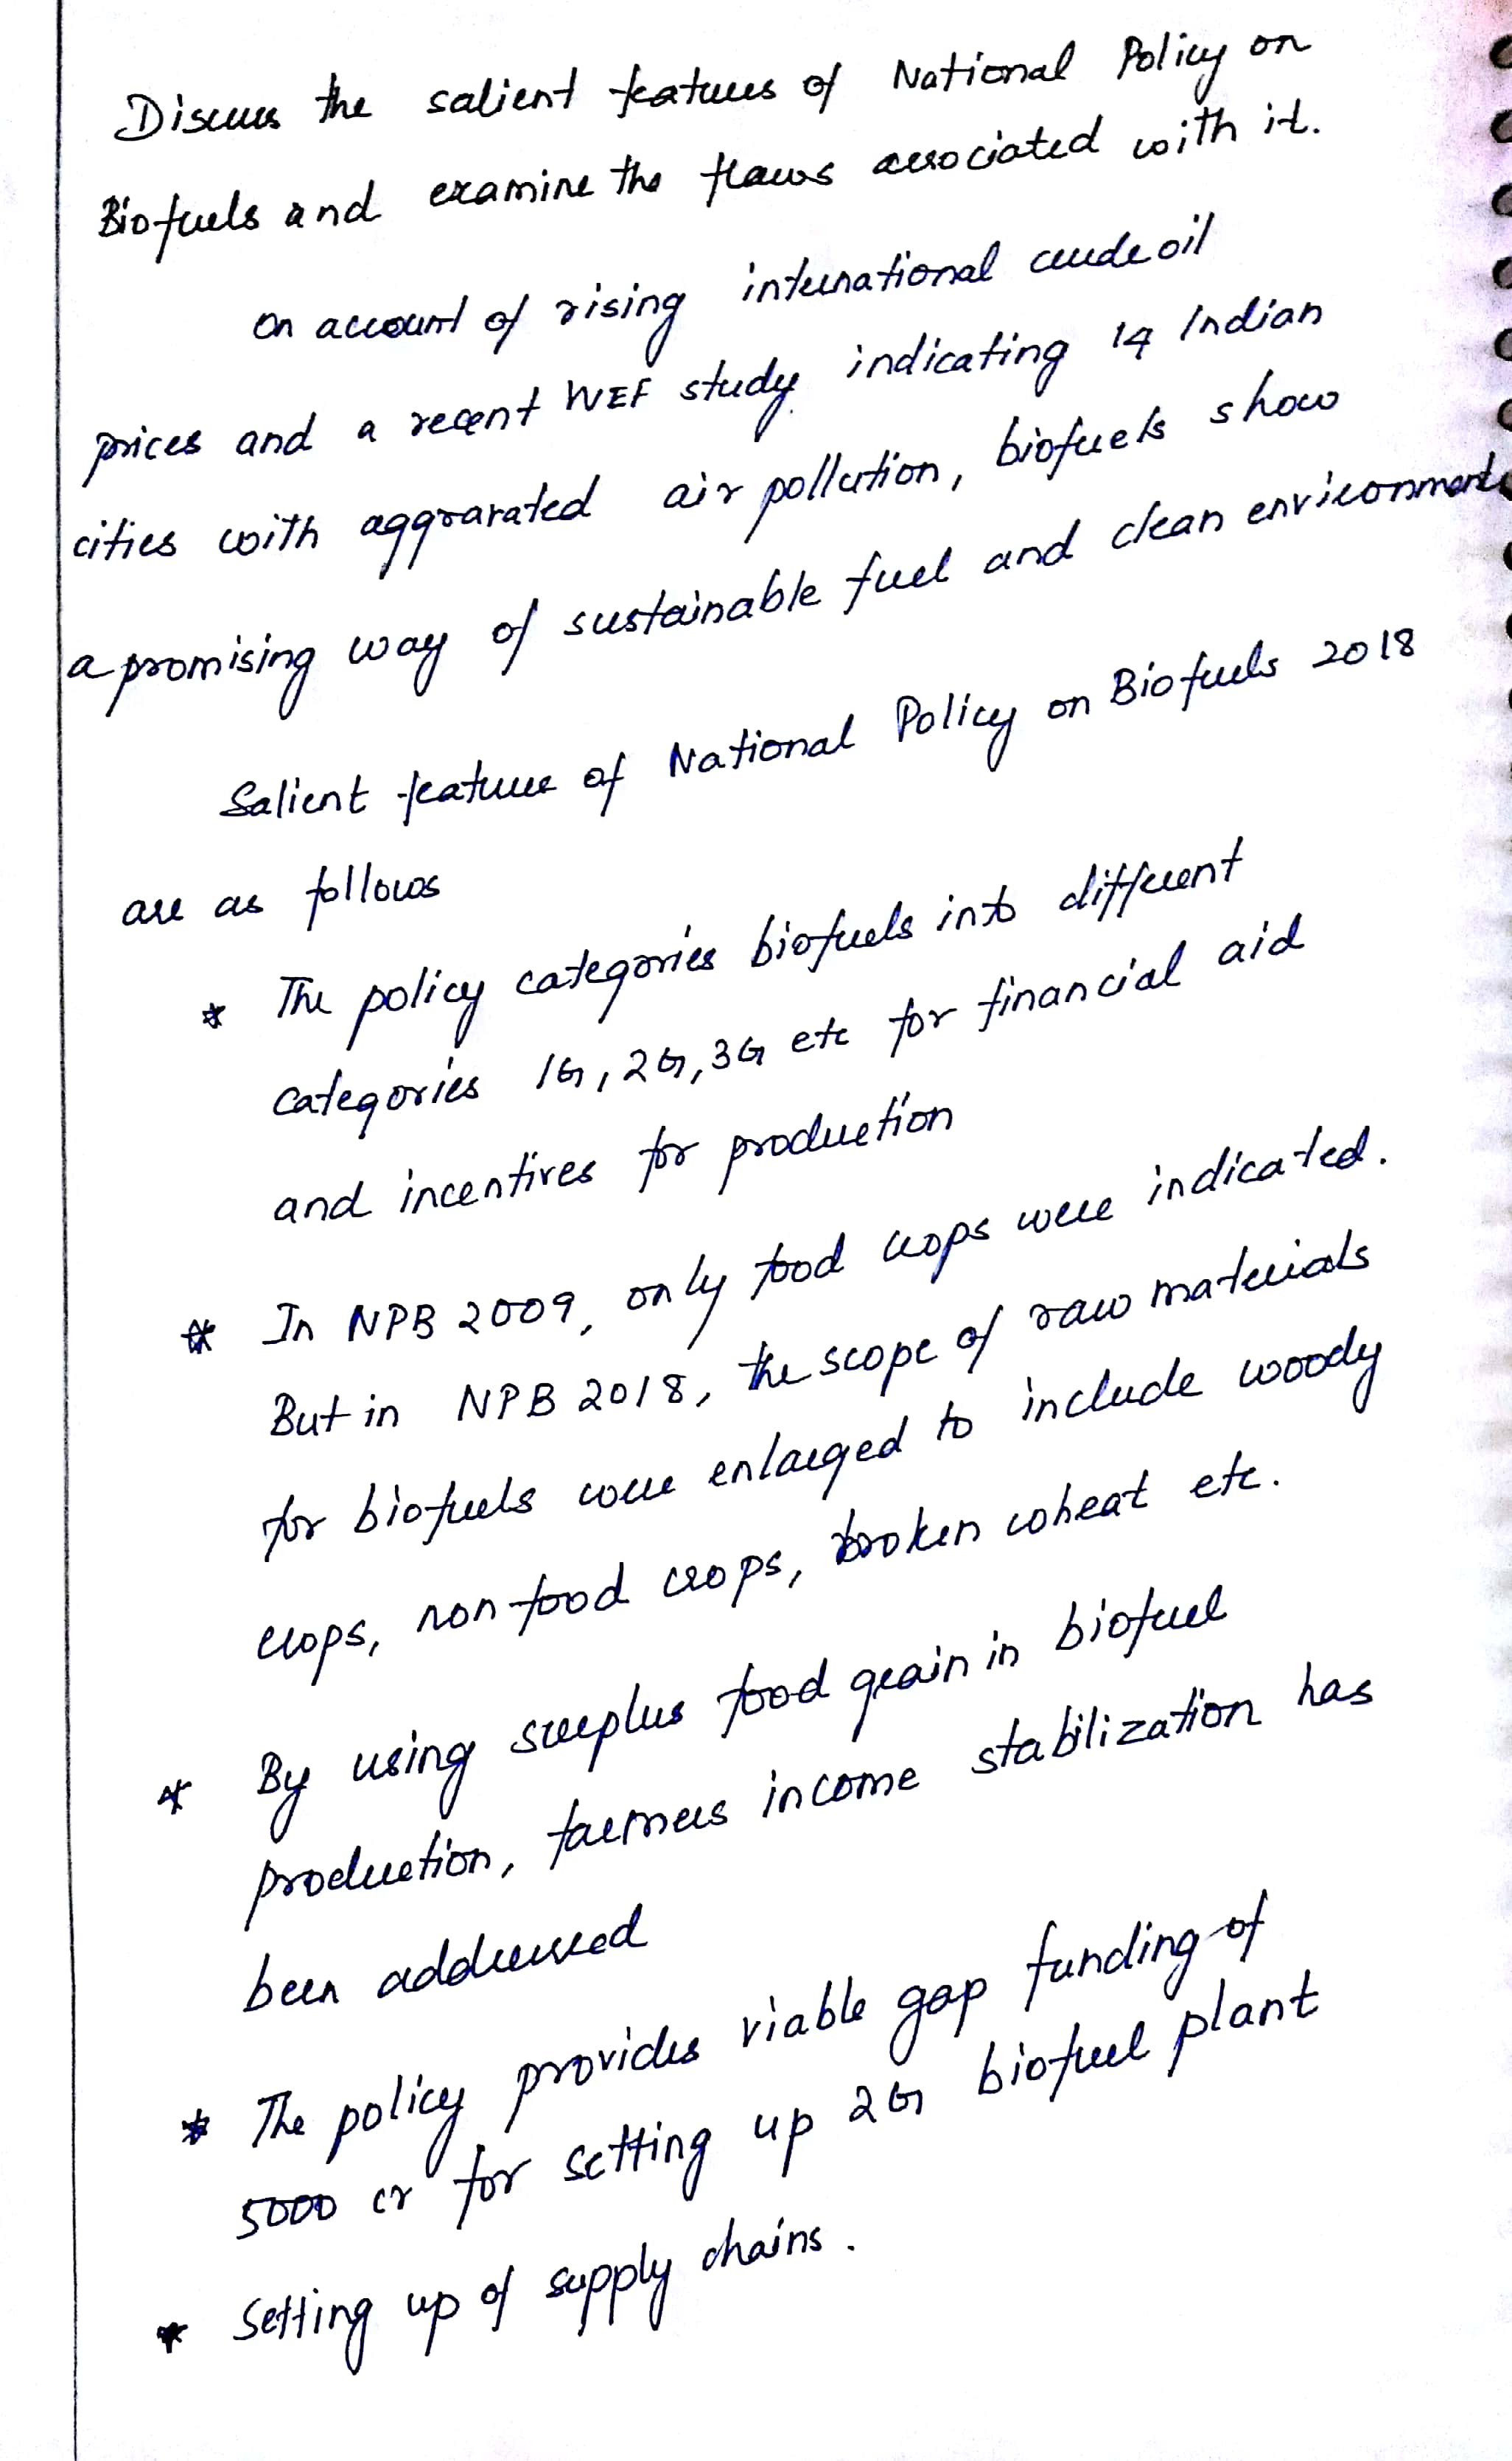 Discuss the salient features of National Policy on
Biofuels and examine the flaws associated with it.
On account of rising international crude oil
prices and a recent WEF study indicating 14 Indian
cities with aggravated air pollution, biofuels show
a promising way of sustainable fuel and clean environment
Salient feature of National Policy on Biofuels 2018
are as follows
* The policy categories biofuels into different
categories 1G, 2G, 3G etc for financial aid
and incentives for production
* In NPB 2009, only food crops were indicated.
But in NPB 2018, the scope of raw materials
for biofuels were enlarged to include woody
crops, non food crops, broken wheat etc.
* By using surplus food grain in biofuel
production, farmers income stabilization has
been addressed
* The policy provides viable gap funding of
5000 cr for setting up 2G biofuel plant
* Setting up of supply chains.